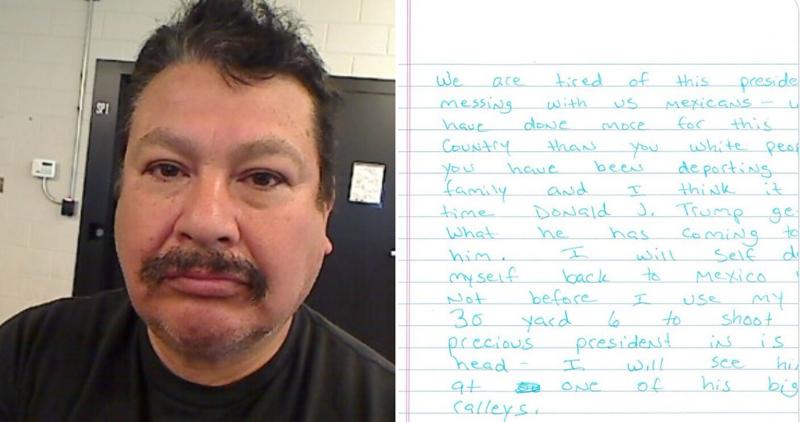 SP1
We are tired of this preside
messing with us mexicans - u
have done more for this
Country than you white peop
you have been deporting
family and I think it
time Donald J. Trump ge
What he has coming to
him. I will self d
myself back to Mexico
Not before I use my
30 yard 6 to shoot
precious president in is
head - I will see hi
at one of his big
ralleys.